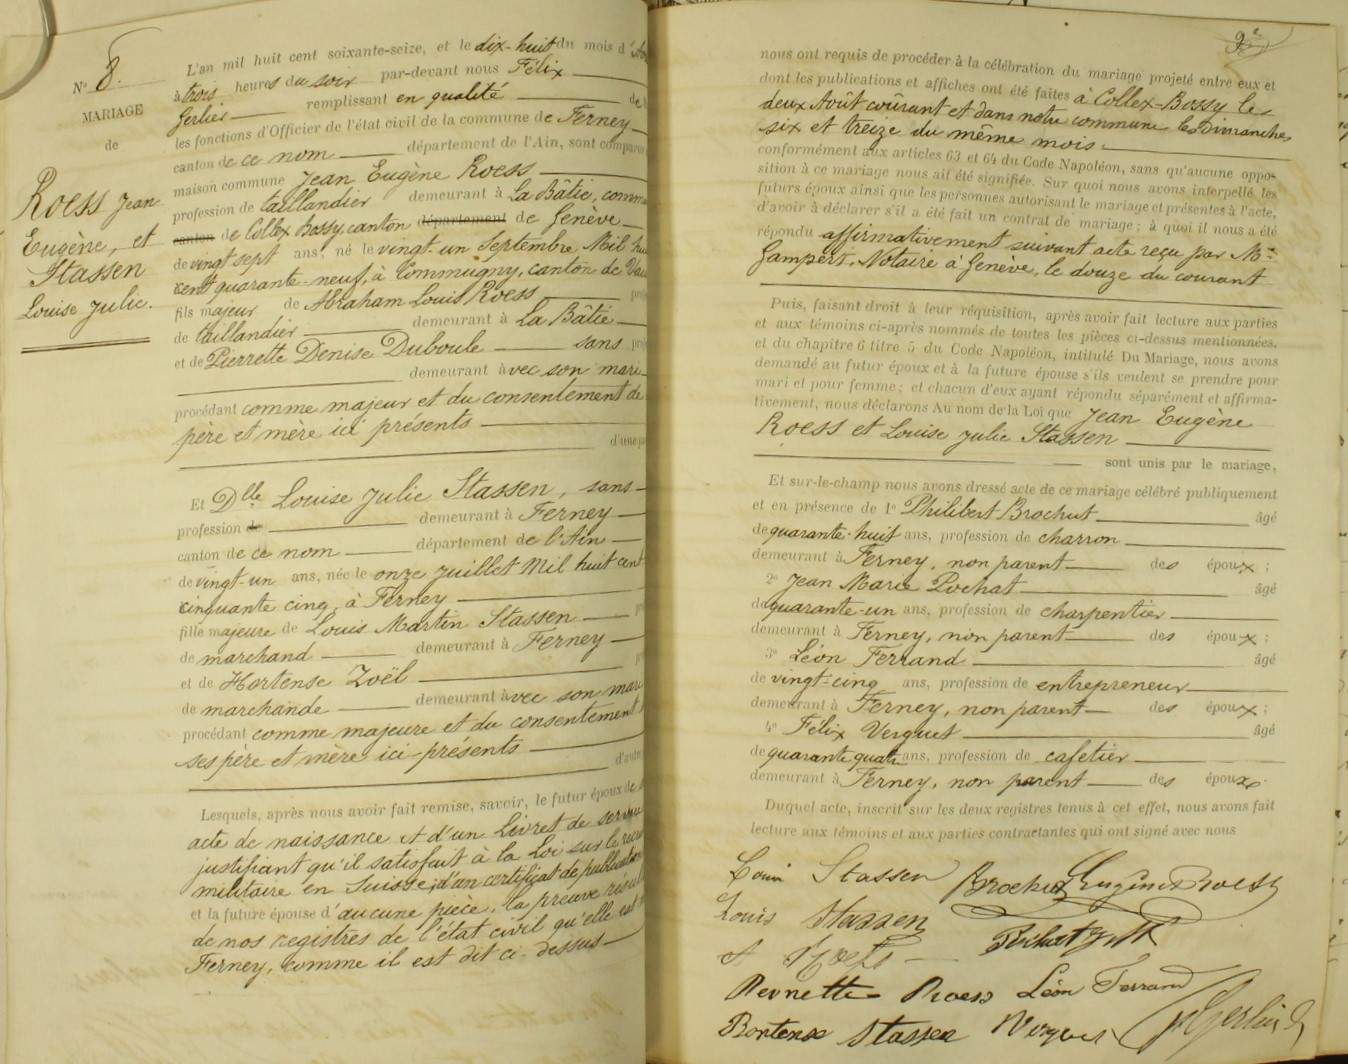 N° 8.
MARIAGE
de
Roess Jean
Eugène, et
Stassen
Louise Julie.
L'an mil huit cent soixante-seize, et le dix-huit du mois d'
à trois heures du soir par-devant nous Félix
Gerlier remplissant en qualité
les fonctions d'Officier de l'état civil de la commune de Ferney
canton de ce nom département de l'Ain, sont comparus
maison commune Jean Eugène Roess
profession de taillandier demeurant à La Bâtie,
canton de Collex Bossy, canton département de Genève
de vingt sept ans, né le vingt-un Septembre Mil
cent quarante-neuf, à Commugny, canton de
fils majeur de Abraham Louis Roess
de taillandier demeurant à La Bâtie
et de Pierrette Denise Duboule sans
demeurant avec son mari
procédant comme majeur et du consentement de
père et mère ici présents
d'une
Et Dlle Louise Julie Stassen, sans
profession de demeurant à Ferney
canton de ce nom département de l'Ain
de vingt-un ans, née le onze Juillet Mil huit cent
cinquante cinq, à Ferney
fille majeure de Louis Martin Stassen
de marchand demeurant à Ferney
et de Hortense Zoël
de marchande demeurant avec son mari
procédant comme majeure et du consentement
ses père et mère ici présents
Lesquels, après nous avoir fait remise, savoir, le futur époux de
acte de naissance et d'un Livret de service
justifiant qu'il satisfait à la Loi sur le
militaire en Suisse; d'un certificat de
et la future épouse d'aucune pièce, la preuve
de nos registres de l'état civil qu'elle est
Ferney, comme il est dit ci-dessus
9e
nous ont requis de procéder à la célébration du mariage projeté entre eux et
dont les publications et affiches ont été faites à Collex-Bossy le
deux Août coûrant et dans notre commune les Dimanches
six et treize du même mois
conformément aux articles 63 et 64 du Code Napoléon, sans qu'aucune oppo-
sition à ce mariage nous ait été signifiée. Sur quoi nous avons interpellé les
futurs époux ainsi que les personnes autorisant le mariage et présentes à l'acte,
d'avoir à déclarer s'il a été fait un contrat de mariage; à quoi il nous a été
répondu affirmativement suivant acte reçu par Me
Gampert, Notaire à Genève, le douze du courant
Puis, faisant droit à leur réquisition, après avoir fait lecture aux parties
et aux témoins ci-après nommés de toutes les pièces ci-dessus mentionnées,
et du chapitre 6 titre 5 du Code Napoléon, intitulé Du Mariage, nous avons
demandé au futur époux et à la future épouse s'ils veulent se prendre pour
mari et pour femme; et chacun d'eux ayant répondu séparément et affirma-
tivement, nous déclarons Au nom de la Loi que Jean Eugène
Roess et Louise Julie Stassen
sont unis par le mariage,
Et sur-le-champ nous avons dressé acte de ce mariage célébré publiquement
et en présence de 1° Philibert Brochut âgé
de quarante-huit ans, profession de charron
demeurant à Ferney, non parent des époux;
2° Jean Marie Pochat âgé
de quarante-un ans, profession de charpentier
demeurant à Ferney, non parent des époux;
3° Léon Ferrand âgé
de vingt-cinq ans, profession de entrepreneur
demeurant à Ferney, non parent des époux;
4° Félix Verguet âgé
de quarante quatre ans, profession de cafetier
demeurant à Ferney, non parent des époux.
Duquel acte, inscrit sur les deux registres tenus à cet effet, nous avons fait
lecture aux témoins et aux parties contractantes qui ont signé avec nous
Stassen Brochut Eugène Roess
Louis Stassen
Pochat
Roess Léon Ferrand
Stassen Verguet Gerlier